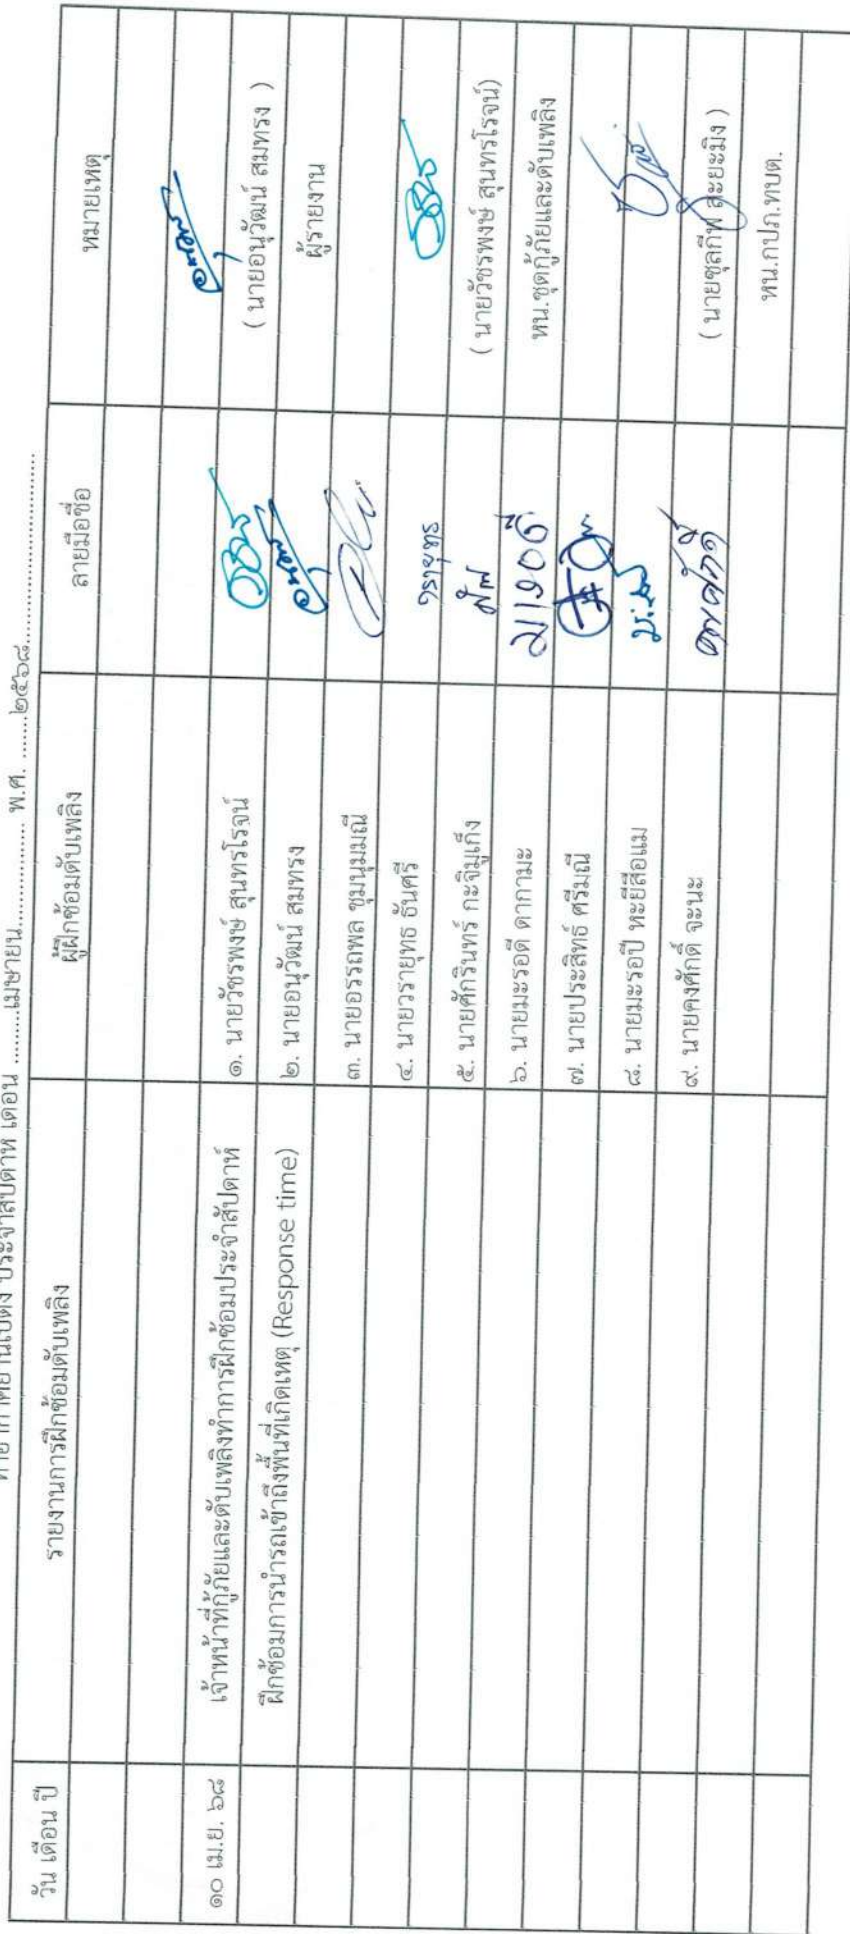 ท่าอากาศยานเบตง ประจำสัปดาห์ เดือน .........เมษายน.................. พ.ศ. .......๒๕๖๘.......................................
วัน เดือน ปี รายงานการฝึกซ้อมดับเพลิง ผู้ฝึกซ้อมดับเพลิง ลายมือชื่อ หมายเหตุ
๑๐ เม.ย. ๖๘ เจ้าหน้าที่กู้ภัยและดับเพลิงทำการฝึกซ้อมประจำสัปดาห์ ๑. นายวัชรพงษ์ สุนทรโรจน์
( นายอนุวัฒน์ สมทรง )
ฝึกซ้อมการนำรถเข้าถึงพื้นที่เกิดเหตุ (Response time) ๒. นายอนุวัฒน์ สมทรง
ผู้รายงาน
๓. นายอรรถพล ชุมนุมมณี
๔. นายวรายุทธ ธันศรี วรายุทธ
๕. นายศักรินทร์ กะจิมูเก็ง
( นายวัชรพงษ์ สุนทรโรจน์)
๖. นายมะรอดี ดากามะ
หน.ชุดกู้ภัยและดับเพลิง
๗. นายประสิทธ์ ศรีมณี
๘. นายมะรอปี หะยีสือแม
๙. นายคงศักดิ์ จะนะ คงศักดิ์
( นายซุลกีฟ สะยะมิง )
หน.กปภ.ทบต.